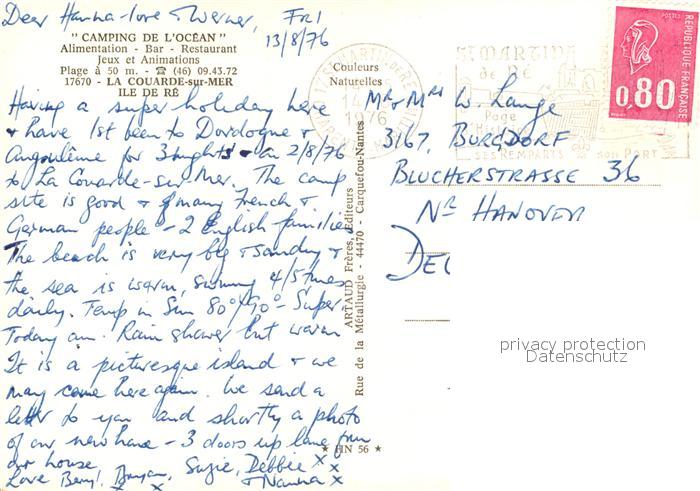 Dear Hanna-lore + Werner, FRI
13/8/76
" CAMPING DE L'OCÉAN "
Alimentation - Bar - Restaurant
Jeux et Animations
Plage à 50 m. - ☎ (46) 09.43.72
17670 - LA COUARDE-sur-MER
ILE DE RÉ
Having a super holiday here
+ have 1st been to Dordogne +
Angoulême for 3 nights - on 2/8/76
to La Couarde-sur-Mer. The camp
site is good + many French +
German people - 2 English families
The beach is very big + sandy +
the sea is warm, swimming 4/5 times
daily. Temp in Sun 80°/90° - Super.
Today am. Rain shower but warm
It is a picturesque island + we
may come here again. We send a
letter to you and shortly a photo
of our new house - 3 doors up lane from
our house.
Love Beryl, Suzie, Debbie x x
+ x
Couleurs
Naturelles
ARTAUD Frères, Editeurs
Rue de la Métallurgie - 44470 - Carquefou-Nantes
★ HN 56 ★
ST MARTIN
de RÉ
1976
SES REMPARTS son PORT
RÉPUBLIQUE FRANÇAISE
POSTES
0,80
Mr + Mrs W. Lange
3167, BURGDORF
BLUCHERSTRASSE 36
Nr HANOVER
DEU
privacy protection
Datenschutz